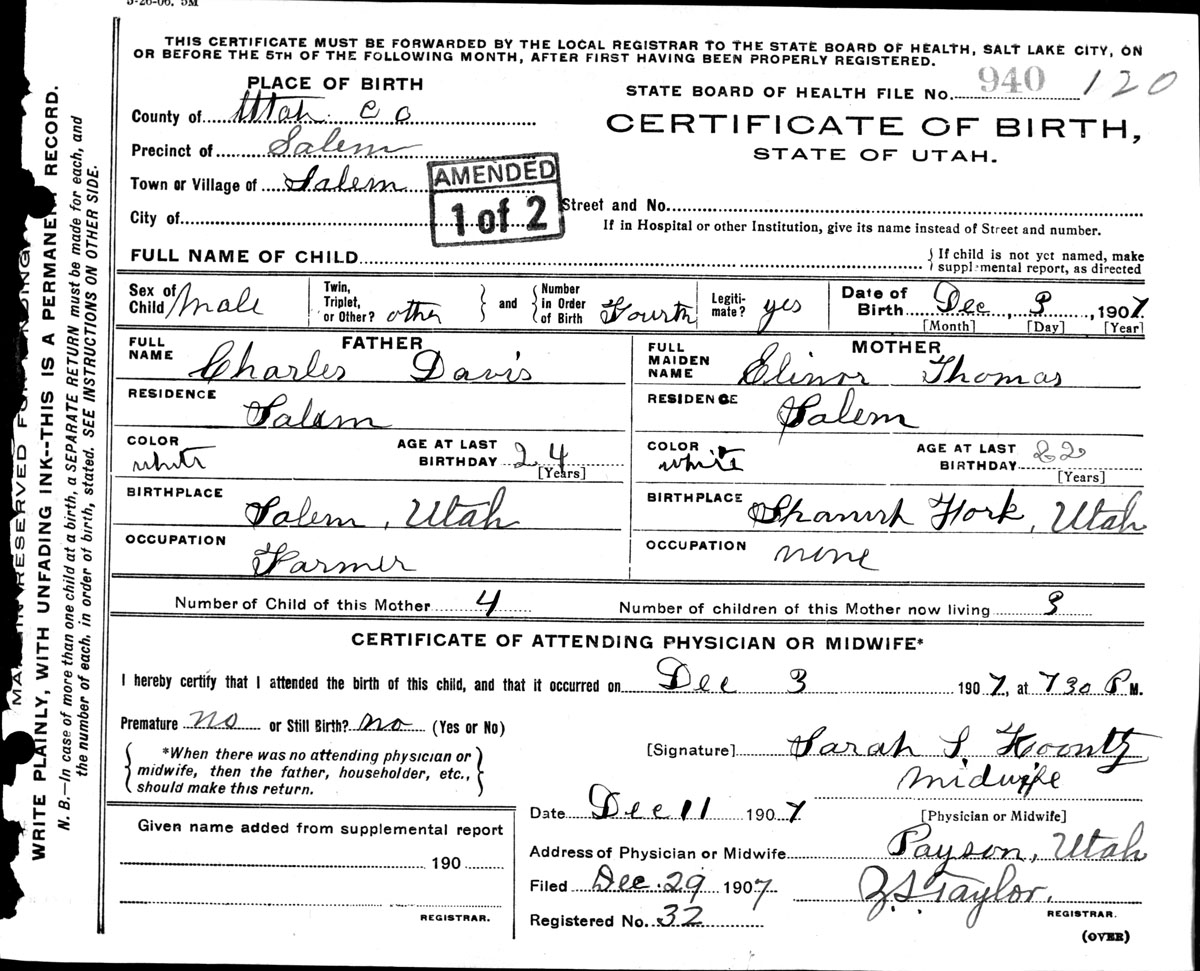 3-26-06. 5M
THIS CERTIFICATE MUST BE FORWARDED BY THE LOCAL REGISTRAR TO THE STATE BOARD OF HEALTH, SALT LAKE CITY, ON
OR BEFORE THE 5TH OF THE FOLLOWING MONTH, AFTER FIRST HAVING BEEN PROPERLY REGISTERED.
PLACE OF BIRTH
STATE BOARD OF HEALTH FILE No. 940 120
County of Utah Co
CERTIFICATE OF BIRTH,
Precinct of Salem
STATE OF UTAH.
Town or Village of Salem
AMENDED
1 of 2
Street and No.
City of
If in Hospital or other Institution, give its name instead of Street and number.
FULL NAME OF CHILD
{If child is not yet named, make
supplemental report, as directed
Sex of Child Male
Twin, Triplet, or Other? other } and { Number in Order of Birth Fourth
Legitimate? yes
Date of Birth Dec 3, 1907
[Month] [Day] [Year]
FATHER
FULL NAME Charles Davis
MOTHER
FULL MAIDEN NAME Elinor Thomas
RESIDENCE Salem
RESIDENCE Salem
COLOR white
AGE AT LAST BIRTHDAY 24
[Years]
COLOR white
AGE AT LAST BIRTHDAY 22
[Years]
BIRTHPLACE Salem, Utah
BIRTHPLACE Spanish Fork, Utah
OCCUPATION Farmer
OCCUPATION none
Number of Child of this Mother 4
Number of children of this Mother now living 3
CERTIFICATE OF ATTENDING PHYSICIAN OR MIDWIFE*
I hereby certify that I attended the birth of this child, and that it occurred on Dec 3 1907, at 730 P M.
Premature no or Still Birth? no (Yes or No)
{ *When there was no attending physician or
midwife, then the father, householder, etc.,
should make this return. }
[Signature] Sarah S Koontz
midwife
[Physician or Midwife]
Date Dec 11 1907
Given name added from supplemental report
190
REGISTRAR.
Address of Physician or Midwife Payson, Utah
Filed Dec. 29 1907
Z.S. Taylor.
REGISTRAR.
Registered No. 32
(OVER)
MARGIN RESERVED FOR BINDING
WRITE PLAINLY, WITH UNFADING INK--THIS IS A PERMANENT RECORD.
N. B.—In case of more than one child at a birth, a SEPARATE RETURN must be made for each, and
the number of each, in order of birth, stated. SEE INSTRUCTIONS ON OTHER SIDE.